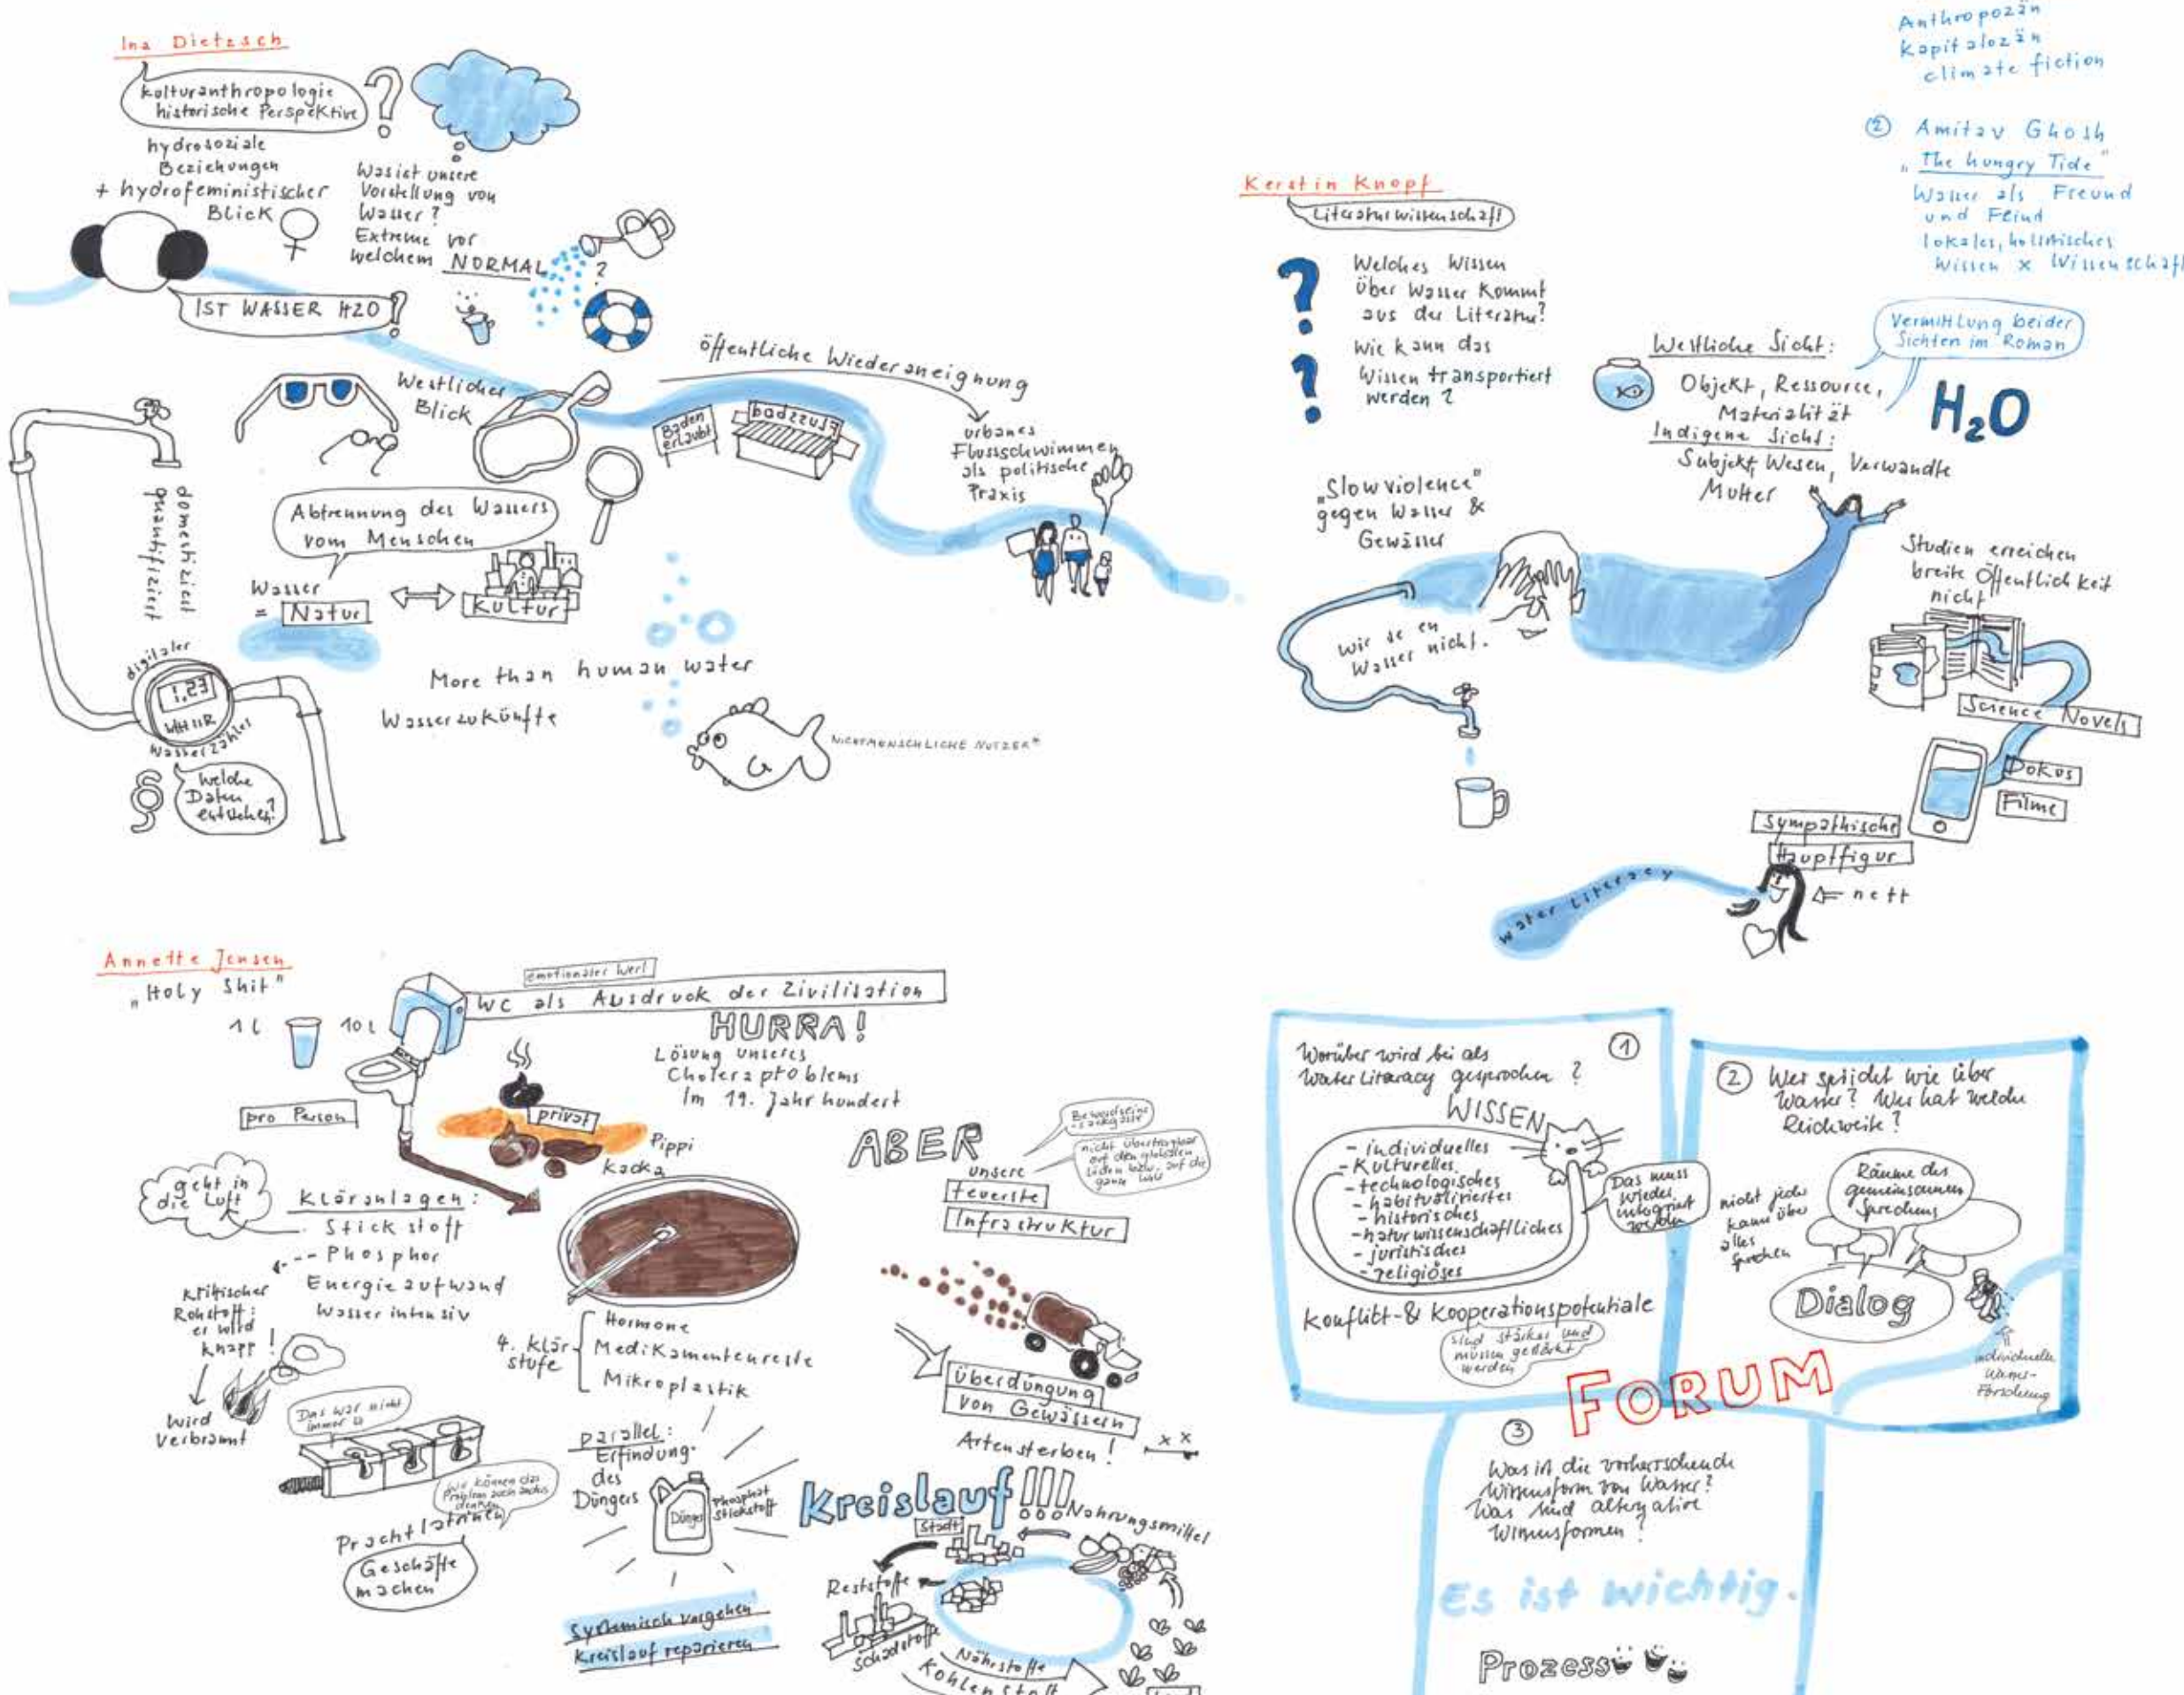 Ina Dietzsch
Kulturanthropologie
historische Perspektive
?
hydrosoziale
Beziehungen
+ hydrofeministischer
Blick
Was ist unsere
Vorstellung von
Wasser?
Extreme vor
welchem NORMAL
?
IST WASSER H2O?
öffentliche Wiederaneignung
Baden
erlaubt
Flussbad
urbanes
Flussschwimmen
als politische
Praxis
Westlicher
Blick
domestiziert
quantifiziert
Abtrennung des Wassers
vom Menschen
Wasser
= Natur
Kultur
digitaler
1,23
Wasserzähler
§
Welche
Daten
entstehen?
More than human water
Wasserzukünfte
NICHTMENSCHLICHE NUTZER*
Anthropozän
Kapitalozän
climate fiction
② Amitav Ghosh
„The hungry Tide"
Wasser als Freund
und Feind
lokales, holistisches
Wissen x Wissenschaft
Kerstin Knopf
Literaturwissenschaft
? Welches Wissen
über Wasser kommt
aus der Literatur?
? Wie kann das
Wissen transportiert
werden?
Vermittlung beider
Sichten im Roman
Westliche Sicht:
Objekt, Ressource,
Materialität
H₂O
Indigene Sicht:
Subjekt, Wesen, Verwandte
Mutter
„Slow violence"
gegen Wasser &
Gewässer
wir se en
Wasser nicht.
Studien erreichen
breite Öffentlichkeit
nicht
Science Novels
Dokus
Filme
Sympathische
Hauptfigur
nett
Water Literacy
Annette Jensen
„Holy Shit"
1 l
10 l
pro Person
emotionaler Wert
WC als Ausdruck der Zivilisation
HURRA!
Lösung unseres
Choleraproblems
Im 19. Jahrhundert
privat
Pippi
Kacka
ABER
unsere
teuerste
Infrastruktur
geht in
die Luft
Kläranlagen:
Stickstoff
Phosphor
Energieaufwand
Wasser intensiv
kritischer
Rohstoff:
er wird
knapp!
Wird
Verbrannt
4. Klär-
stufe
Hormone
Medikamentenreste
Mikroplastik
Überdüngung
von Gewässern
Artensterben!
Das war nicht
immer so
Wir können das
Problem auch anders
denken
Prachtlatrinen
Geschäfte
machen
parallel:
Erfindung
des
Düngers
Dünger
Phosphat
Stickstoff
Systemisch vorgehen
Kreislauf reparieren
Kreislauf!!!
Stadt
Nahrungsmittel
Reststoffe
Schadstoffe
Nährstoffe
Kohlenstoff
①
Worüber wird bei als
Water Literacy gesprochen?
WISSEN
- individuelles
- Kulturelles
- technologisches
- habitualisiertes
- historisches
- naturwissenschaftliches
- juristisches
- religiöses
Das muss
wieder
integriert
werden
Konflikt- & Kooperationspotentiale
sind stärker und
müssen gestärkt
werden
② Wer spricht wie über
Wasser? Wer hat welche
Reichweite?
nicht jeder
kann über
alles
sprechen
Räume des
gemeinsamen
Sprechens
Dialog
individuelle
Forschung
FORUM
③
Was ist die vorherrschende
Wissensform von Wasser?
Was sind alternative
Wissensformen?
Es ist wichtig.
Prozess